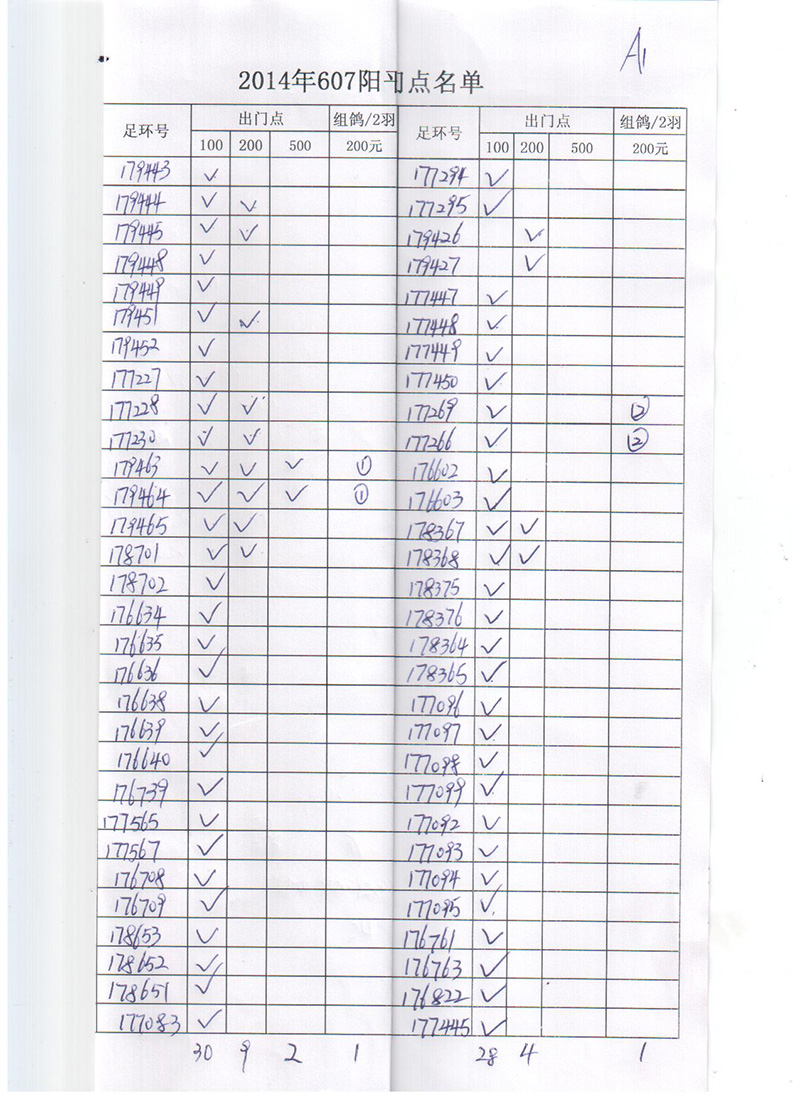 A1
2014年607阳习点名单
足环号 出门点 组鸽/2羽 足环号 出门点 组鸽/2羽
100 200 500 200元 100 200 500 200元
179443 ✓ 177294 ✓
179444 ✓ ✓ 177295 ✓
179445 ✓ ✓ 179426 ✓
179448 ✓ 179427 ✓
179449 ✓ 177447 ✓
179451 ✓ ✓ 177448 ✓
179452 ✓ 177449 ✓
177227 ✓ 177450 ✓
177228 ✓ ✓ 177269 ✓ ②
177230 ✓ ✓ 177266 ✓ ②
179463 ✓ ✓ ✓ ① 176602 ✓
179464 ✓ ✓ ✓ ① 176603 ✓
179465 ✓ ✓ 178367 ✓ ✓
178701 ✓ ✓ 178368 ✓ ✓
178702 ✓ 178375 ✓
176634 ✓ 178376 ✓
176635 ✓ 178364 ✓
176636 ✓ 178365 ✓
176638 ✓ 177096 ✓
176639 ✓ 177097 ✓
176640 ✓ 177098 ✓
176739 ✓ 177099 ✓
177565 ✓ 177092 ✓
177567 ✓ 177093 ✓
176708 ✓ 177094 ✓
176709 ✓ 177095 ✓
178653 ✓ 176761 ✓
178652 ✓ 176763 ✓
178651 ✓ 176822 ✓
177083 ✓ 177445 ✓
30 9 2 1 28 4 1